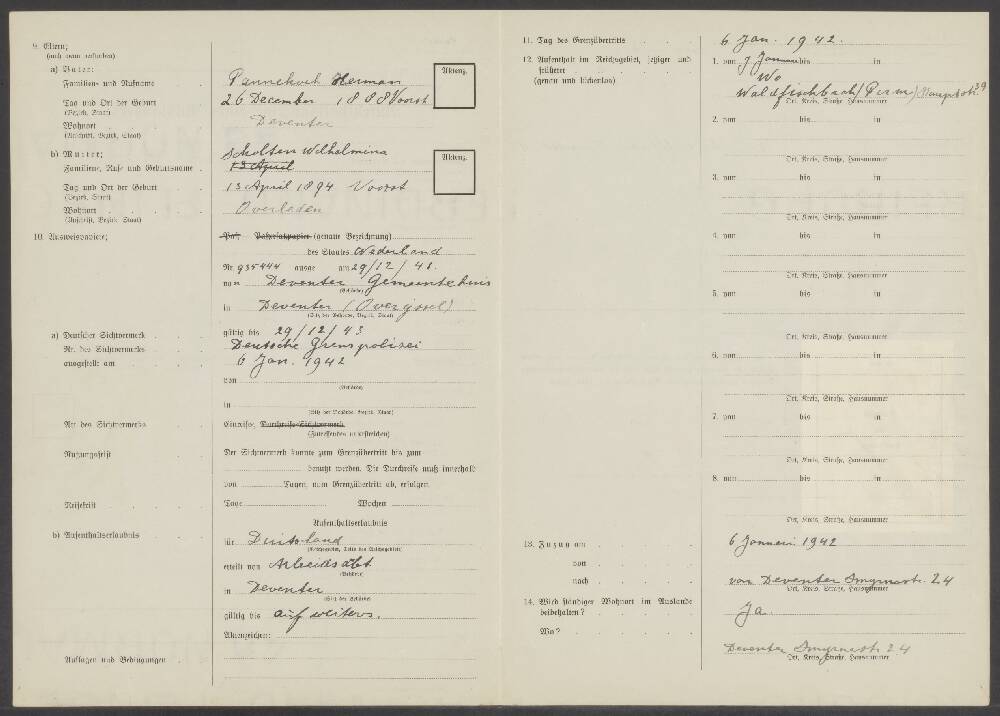 9. Eltern;
(auch wenn verstorben)
a) Vater:
Familien- und Rufname
Pannekoek Herman
Aktenz.
Tag und Ort der Geburt
26 December 1888 Voorst
(Bezirk, Staat)
Deventer
Wohnort
(Anschrift, Bezirk, Staat)
b) Mutter;
Scholten Wilhelmina
Aktenz.
Familien-, Ruf- und Geburtsname
13 April
Tag und Ort der Geburt
13 April 1894 Voorst
(Bezirk, Staat)
Wohnort
Overleden
(Anschrift, Bezirk, Staat)
10. Ausweispapiere;
Paß- Paßersatzpapier (genaue Bezeichnung)
des Staates Nederland
Nr. 935444 ausge am 29/12/41.
von Deventer Gemeentehuis
(Behörde)
in Deventer (Overijssel)
(Sitz der Behörde, Bezirk, Staat)
gültig bis 29/12/43
a) Deutscher Sichtvermerk
Deutsche Grenspolizei
Nr. des Sichtvermerks
6 Jan. 1942
ausgestellt am
von
(Behörde)
in
(Sitz der Behörde, Bezirk, Staat)
Art des Sichtvermerks
Einreise, Durchreise-Sichtvermerk
(Zutreffendes unterstreichen)
Nutzungsfrist
Der Sichtvermerk konnte zum Grenzübertritt bis zum
benutzt werden. Die Durchreise muß innerhalb
von Tagen, vom Grenzübertritt ab, erfolgen
Reisefrist
Tage Wochen
Aufenthaltserlaubnis
b) Aufenthaltserlaubnis
für Duitsland
(Reichsgebiet, Teile des Reichsgebiets)
erteilt von Arbeidsabt
(Behörde)
in Deventer
(Sitz der Behörde)
gültig bis auf weiters.
Aktenzeichen:
Auflagen und Bedingungen
11. Tag des Grenzübertritts
6 Jan. 1942.
12. Aufenthalt im Reichsgebiet, jetziger und
früherer
(genau und lückenlos)
1. von 7 Januari bis in
Wo
Waldfischbach (Pirm) Hauptstr. 39
Ort, Kreis, Straße, Hausnummer
2. von bis in
Ort, Kreis, Straße, Hausnummer
3. von bis in
Ort, Kreis, Straße, Hausnummer
4. von bis in
Ort, Kreis, Straße, Hausnummer
5. von bis in
Ort, Kreis, Straße, Hausnummer
6. von bis in
Ort, Kreis, Straße, Hausnummer
7. von bis in
Ort, Kreis, Straße, Hausnummer
8. von bis in
Ort, Kreis, Straße, Hausnummer
13. Zuzug am
6 Januari 1942
von
nach
von Deventer Smyrnastr. 24
Ort, Kreis, Straße, Hausnummer
14. Wird ständiger Wohnort im Auslande
beibehalten?
Ja.
Wo?
Deventer Smyrnastr. 24
Ort, Kreis, Straße, Hausnummer